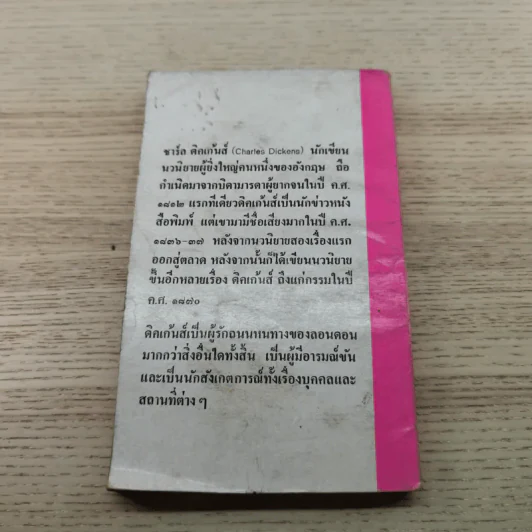 ชาร์ล ดิคเก้นส์ (Charles Dickens) นักเขียน
นวนิยายผู้ยิ่งใหญ่คนหนึ่งของอังกฤษ ถือ
กำเนิดมาจากบิดามารดาผู้ยากจนในปี ค.ศ.
๑๘๑๒ แรกทีเดียวดิคเก้นส์เป็นนักข่าวหนัง
สือพิมพ์ แต่เขามามีชื่อเสียงมากในปี ค.ศ.
๑๘๓๖-๓๗ หลังจากนวนิยายสองเรื่องแรก
ออกสู่ตลาด หลังจากนั้นก็ได้เขียนนวนิยาย
ขึ้นอีกหลายเรื่อง ดิคเก้นส์ ถึงแก่กรรมในปี
ค.ศ. ๑๘๗๐
ดิคเก้นส์เป็นผู้รักถนนหนทางของลอนดอน
มากกว่าสิ่งอื่นใดทั้งสิ้น เป็นผู้มีอารมณ์ขัน
และเป็นนักสังเกตการณ์ทั้งเรื่องบุคคลและ
สถานที่ต่าง ๆ